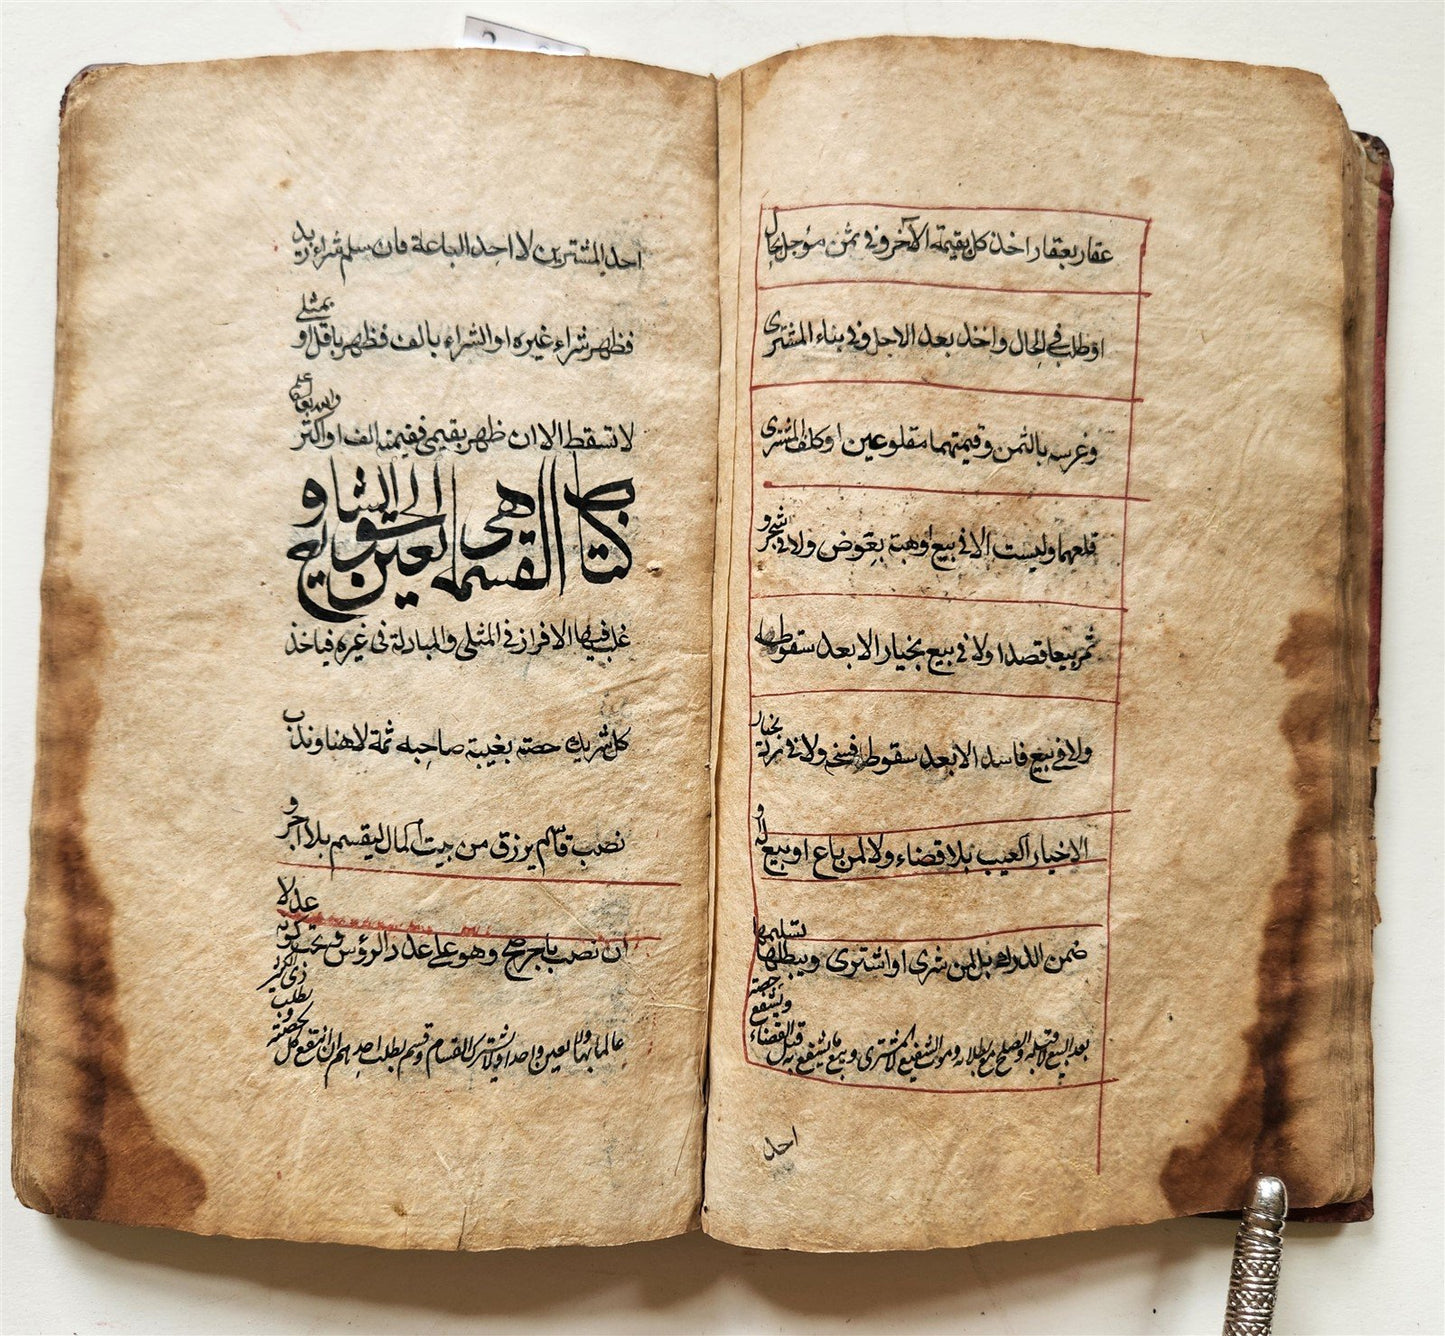 عقار بعقار اخذ كل بقيمة الآخر وفي ثمن مؤجل بحال
او طلب في الحال واخذ بعد الاجل وفي بناء المشتري
وغرسه بالثمن وقيمتهما مقلوعين او كلف المشتري
قلعهما وليست الا في بيع او هبة بعوض ولا في شجر و
ثمر بيعا قصدا ولا في بيع بخيار الا بعد سقوطه
ولا في بيع فاسد الا بعد سقوط فسخه ولا في رد بخيار
الا خيار العيب بلا قضاء ولا لمن باع او بيع له او
ضمن الدرك بل لمن شرى او اشترى ويبطلها تسليمها
بعد البيع لا قبله والصلح مع بطلانه وموت الشفيع لا المشترى وبيع ما يشفع به قبل القضاء ويشفع حصة
احد
احد المشترين لا احد الباعة فان سلم شراء زيد
فظهر شراء غيره او الشراء بالف فظهر باقل او بمثلي
لا تسقط الا ان ظهر بقيمي قيمته الف او اكثر والله تعالى اعلم
كتاب القسمة هي تعين الحق الشايع و
غلب فيها الافراز في المثلي والمبادلة في غيره فياخذ
كل شريك حصته بغيبة صاحبه ثمة لا هنا وندب
نصب قاسم يرزق من بيت المال ليقسم بلا اجر و
ان نصب باجر صح وهو على عدد الرؤس ويجب كونه عدلا
عالما بها ولا يعين واحد ولا يشترك القسام وقسم بطلب احدهم ان انتفع كل بحصته و بطلب ذي الكثير